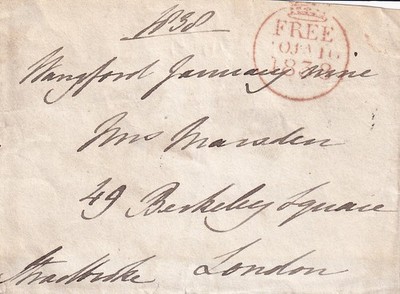 1838
FREE
10 JA 10
1838
Wangford January nine
Mrs Marsden
49 Berkeley Square
London
Stradbroke